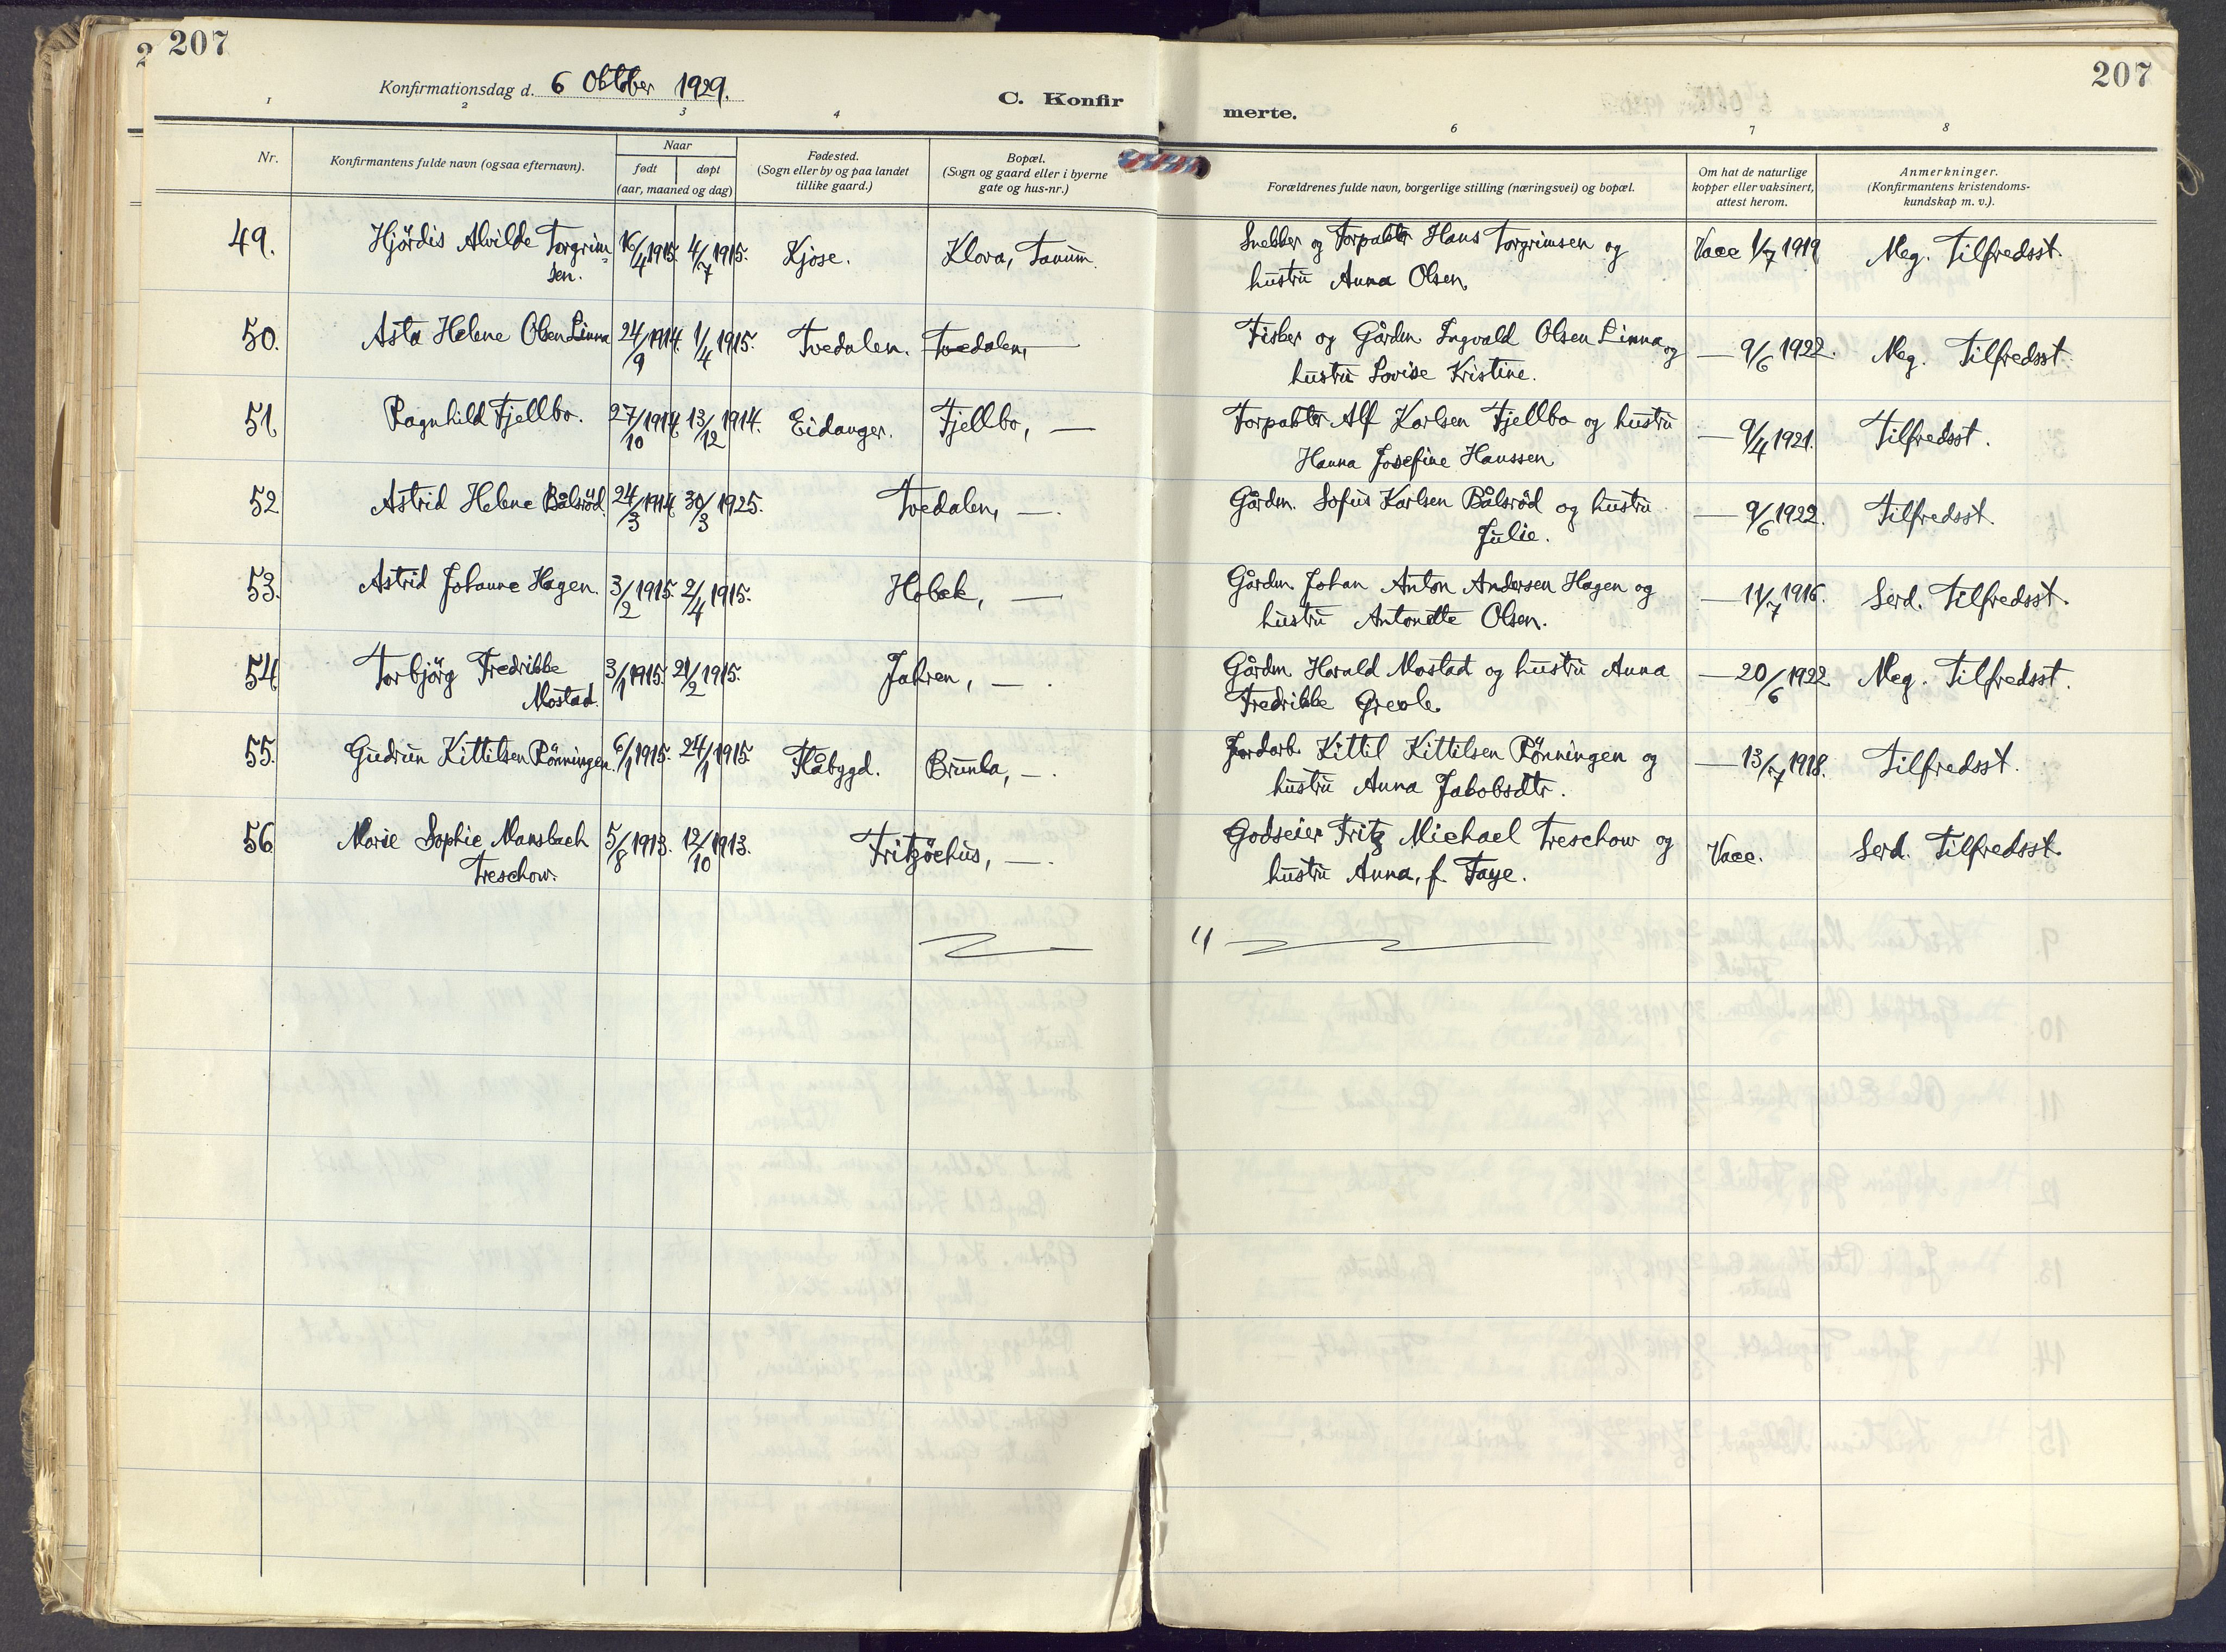 207
207
Konfirmationsdag d. 6 Oktober 1929.
C. Konfir
merte.
1 2 3 4 6 7 8
Nr.
Konfirmantens fulde navn (ogsaa efternavn).
Naar
født døpt
(aar, maaned og dag)
Fødested.
(Sogn eller by og paa landet
tillike gaard.)
Bopæl.
(Sogn og gaard eller i byerne
gate og hus-nr.)
Forældrenes fulde navn, borgerlige stilling (næringsvei) og bopæl.
Om hat de naturlige
kopper eller vaksinert,
attest herom.
Anmerkninger.
(Konfirmantens kristendoms-
kundskap m. v.).
49. Hjördis Alvilde Torgrim- 16/4 1915. 4/7 1915. Kjose. Klova, Tanum. Snekker og Forpakter Hans Torgrimsen og Vacc 1/7 1919 Meg. Tilfredsst.
sen. hustru Anna Olsen
50. Asta Helene Olsen Linna 24/9 1914. 1/4 1915. Tvedalen. Tvedalen, — Fisker og Gårdm. Ingvald Olsen Linna og — 9/6 1922. Meg. Tilfredsst.
hustru Lovise Kristine.
51 Ragnhild Fjellbo. 27/10 1914 13/12 1914. Eidanger. Fjellbo, — Forpakter Alf Karlsen Fjellbo og hustru — 9/4 1921. Tilfredsst.
Hanna Josefine Hanssen
52 Astrid Helene Bålsröd 24/3 1914 30/3 1925. Tvedalen, —. Gårdm. Sofus Karlsen Bålsröd og hustru — 9/6 1922. Tilfredsst.
Julie.
53. Astrid Johanne Hagen. 3/2 1915. 2/4 1915. Hobæk, — Gårdm. Johan Anton Andersen Hagen og — 11/7 1916. Serd. Tilfredsst.
hustru Antonette Olsen.
54 Torbjörg Fredrikke 3/1 1915. 21/2 1915. Jahren, —. Gårdm Harald Mostad og hustru Anna — 20/6 1922 Meg. Tilfredsst.
Mostad. Fredrikke Grevle.
55. Gudrun Kittilsen Rönningen. 6/1 1915. 24/1 1915. Flåbygd. Brunla, —. Jordarb. Kittil Kittilsen Rönningen og — 13/7 1918. Tilfredsst.
hustru Anna Jakobsdtr.
56 Marie Sophie Mansbach 5/8 1913. 12/10 1913. Fritzöehus, —. Godseier Fritz Michael Treschow og Vacc. Serd. Tilfredsst.
Treschow. hustru Anna, f. Faye.